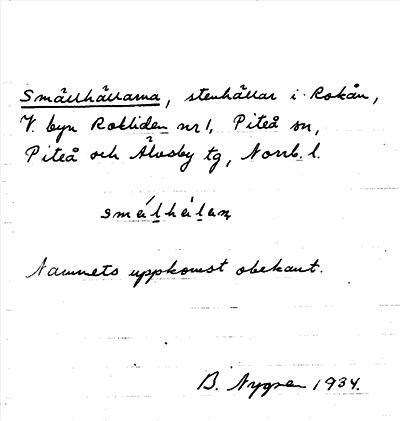 Smällhällarna, stenhällar i Rokån,
V. byn Rokliden nr 1, Piteå sn,
Piteå och Älvsby tg, Norrb. l.
smálhálaṇ
Namnets uppkomst obekant.
B. Nygren 1934.